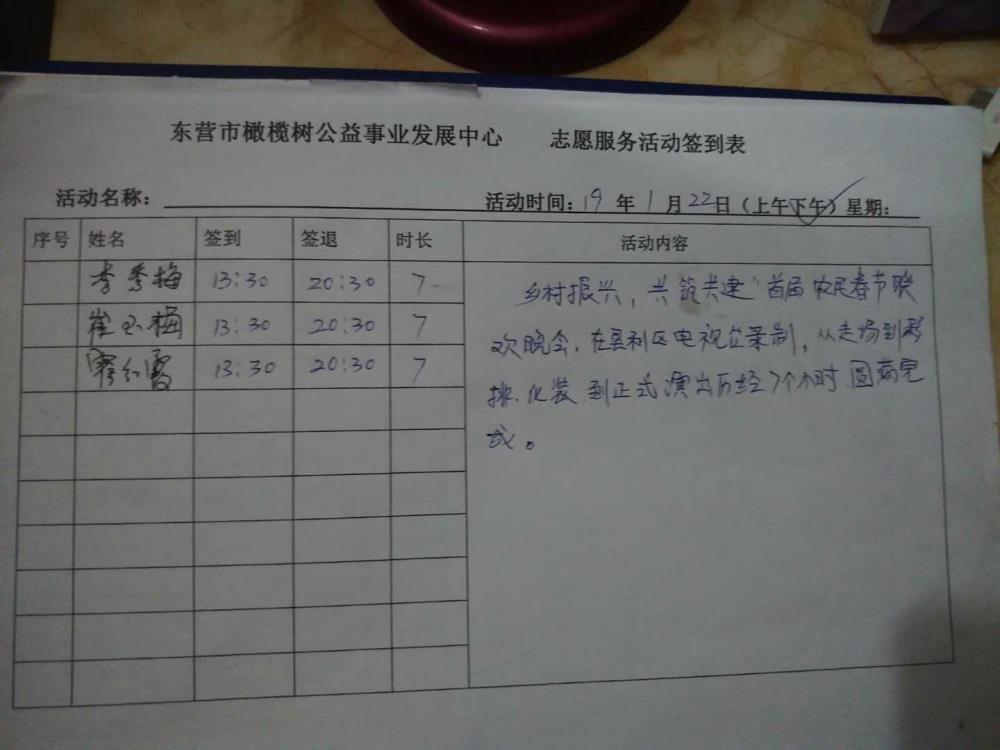 东营市橄榄树公益事业发展中心 志愿服务活动签到表
活动名称: 活动时间:19年1月22日(上午下午)星期:
序号 姓名 签到 签退 时长 活动内容
李秀梅 13:30 20:30 7
崔玉梅 13:30 20:30 7
红霞 13:30 20:30 7
乡村振兴,共筑共建"首届农民春节联
欢晚会,在垦利区电视台录制,从走场到彩
排、化装到正式演出历经7个小时圆满完
成。